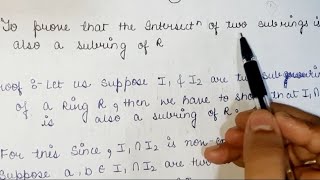 To prove that the Intersectⁿ of two subrings is
also a subring of R
roof :- Let us suppose I₁ & I₂ are two
of a Ring R, then we have to show that I₁ ∩
is also a subring of R
For this Since, I₁ ∩ I₂ is non-
Suppose a, b ∈ I₁ ∩ I₂ are two